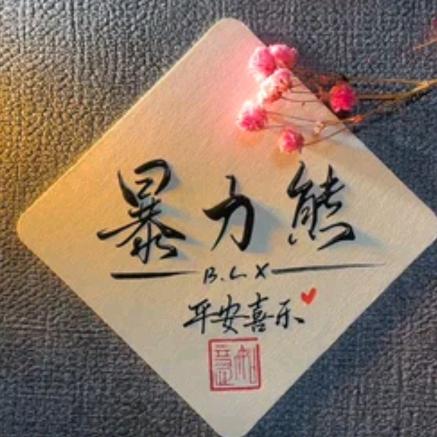 暴力熊
B.L X
平安喜乐